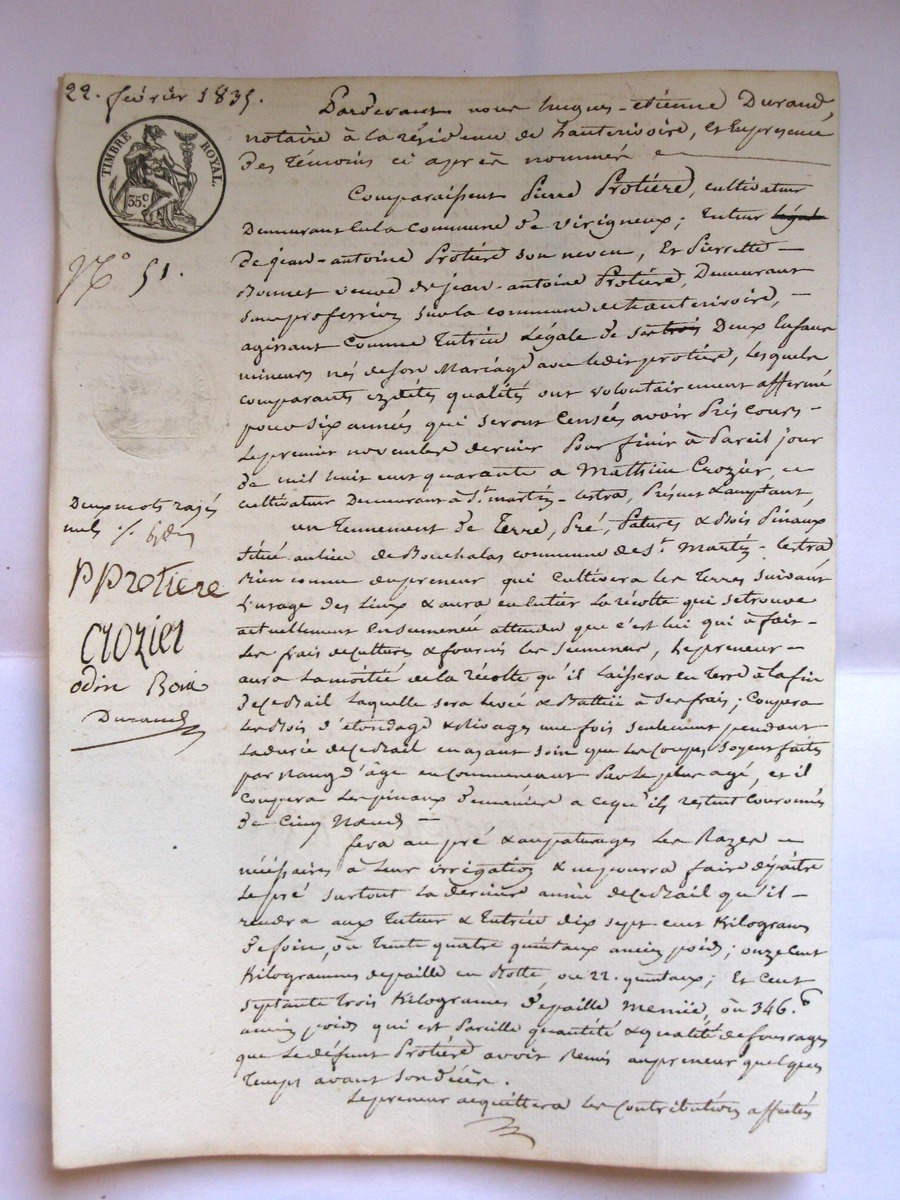 22. février 1835.
TIMBRE ROYAL.
35c.
N° 51.
Pardevant nous hugues-étienne Durand,
notaire à la résidence de hauterivoire, et En présence
des témoins ci après nommés
Comparaissent Pierre Protière, cultivateur
Demeurant en la Commune de Virigneux; tuteur légal
de jean-antoine Protière son neveu, Et Pierrette
Bonnet veuve de jean-antoine Protière, Demeurant
sans profession sur la commune de hauterivoire,
agissant Comme tutrice Légale de ses trois Deux Enfans
mineurs nés de son Mariage avec ledit protière, Lesquels
comparants èzdites qualités ont volontairement affermé
pour six années qui seront Censées avoir Pris Cours
Le premier novembre dernier Pour finir à Pareil jour
de mil huit cent quarante a Mathieu Crozier,
cultivateur Demeurant à St. martin-Lestra, Présent & acceptant,
un Tennement de Terre, Pré, Patures & Bois Pinaux
situé au lieu de Bouchalas commune de St. Martin-Lestra
Bien connu du preneur qui Cultivera les Terres suivant
L'usage des Lieux & aura en Entier La récolte qui se trouve
actuellement Ensemencée attendu que c'est lui qui à fait
Les frais de culture & fourni les Semences, Le preneur
aura La moitié de la récolte qu'il Laissera en Terre à la fin
de ce Bail Laquelle sera Levée & Battue à ses frais; Coupera
Les Bois d'étondage & rivages une fois seulement pendant
La durée de ce Bail en ayant soin que les Coupes soyent faites
par rang d'âge en Commencant Par le plus agé, et il
coupera Les pinaux de manière a ce qu'ils restent Couronnés
de Cinq Nœuds
fera au pré & aux paturages Les Razes
nécéssaires à Leur irrigation & ne pourra faire dépaitre
Le pré surtout la dernière année de ce Bail qu'il
rendra aux Tuteur & Tutrice dix sept cent Kilogrames
de foin, ou Trente quatre quintaux ancien poids; onze Cent
Kilogrammes de paille en Botte ou 22. quintaux; Et Cent
septante trois Kilogrames de paille Menue, ou 346.
ancien poids qui est Pareille quantité & qualité de fourages
que Le défunt Protière avoit Remis au preneur quelques
Temps avant son décès.
Le preneur acquittera les Contributions affectés
Deux mots rayés
nuls
P Protiere
CROZIER
odin
Durand